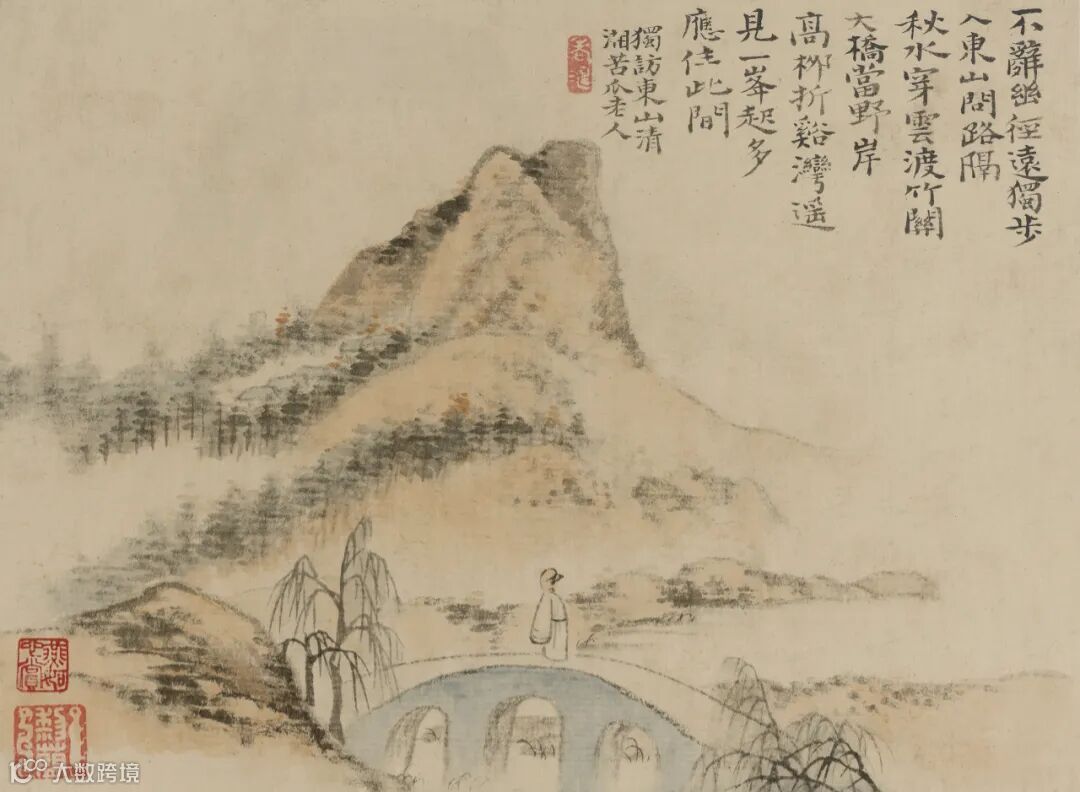 不辭幽徑遠獨步
入東山問路隔
秋水穿雲渡竹關
大橋當野岸
高柳折谿灣遥
見一峯起多
應住此間
獨訪東山清
湘苦瓜老人
大数跨境